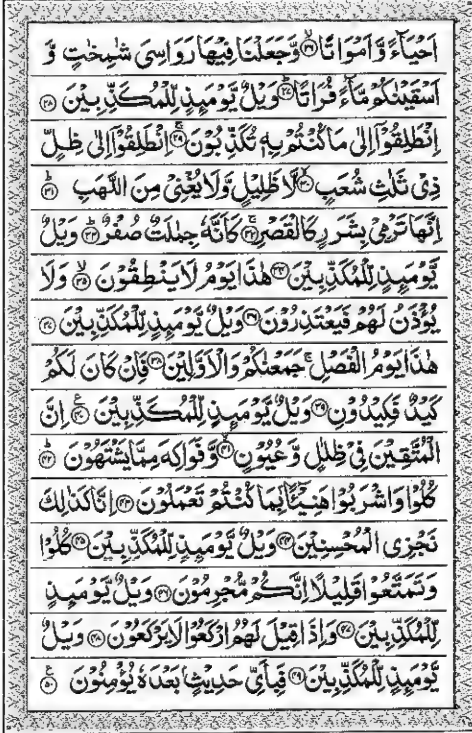 اَحْيَآءً وَّاَمْوَاتًا ۙ﴿۲۶﴾ وَّجَعَلْنَا فِيْهَا رَوَاسِىَ شٰمِخٰتٍ وَّ
اَسْقَيْنٰكُمْ مَّآءً فُرَاتًا ؕ﴿۲۷﴾ وَيْلٌ يَّوْمَئِذٍ لِّلْمُكَذِّبِيْنَ ﴿۲۸﴾
اِنْطَلِقُوْۤا اِلٰى مَا كُنْتُمْ بِهٖ تُكَذِّبُوْنَ ۚ﴿۲۹﴾ اِنْطَلِقُوْۤا اِلٰى ظِلٍّ
ذِىْ ثَلٰثِ شُعَبٍ ۙ﴿۳۰﴾ لَّا ظَلِيْلٍ وَّلَا يُغْنِىْ مِنَ اللَّهَبِ ؕ﴿۳۱﴾
اِنَّهَا تَرْمِىْ بِشَرَرٍ كَالْقَصْرِ ۚ﴿۳۲﴾ كَاَنَّهٗ جِمٰلَتٌ صُفْرٌ ؕ﴿۳۳﴾ وَيْلٌ
يَّوْمَئِذٍ لِّلْمُكَذِّبِيْنَ ﴿۳۴﴾ هٰذَا يَوْمُ لَا يَنْطِقُوْنَ ۙ﴿۳۵﴾ وَلَا
يُؤْذَنُ لَهُمْ فَيَعْتَذِرُوْنَ ﴿۳۶﴾ وَيْلٌ يَّوْمَئِذٍ لِّلْمُكَذِّبِيْنَ ﴿۳۷﴾
هٰذَا يَوْمُ الْفَصْلِ ۚ جَمَعْنٰكُمْ وَالْاَوَّلِيْنَ ﴿۳۸﴾ فَاِنْ كَانَ لَكُمْ
كَيْدٌ فَكِيْدُوْنِ ﴿۳۹﴾ وَيْلٌ يَّوْمَئِذٍ لِّلْمُكَذِّبِيْنَ ﴿۴۰﴾ اِنَّ
الْمُتَّقِيْنَ فِىْ ظِلٰلٍ وَّعُيُوْنٍ ۙ﴿۴۱﴾ وَّفَوَاكِهَ مِمَّا يَشْتَهُوْنَ ؕ﴿۴۲﴾
كُلُوْا وَاشْرَبُوْا هَنِيْٓئًۢا بِمَا كُنْتُمْ تَعْمَلُوْنَ ﴿۴۳﴾ اِنَّا كَذٰلِكَ
نَجْزِى الْمُحْسِنِيْنَ ﴿۴۴﴾ وَيْلٌ يَّوْمَئِذٍ لِّلْمُكَذِّبِيْنَ ﴿۴۵﴾ كُلُوْا
وَتَمَتَّعُوْا قَلِيْلًا اِنَّكُمْ مُّجْرِمُوْنَ ﴿۴۶﴾ وَيْلٌ يَّوْمَئِذٍ
لِّلْمُكَذِّبِيْنَ ﴿۴۷﴾ وَاِذَا قِيْلَ لَهُمُ ارْكَعُوْا لَا يَرْكَعُوْنَ ﴿۴۸﴾ وَيْلٌ
يَّوْمَئِذٍ لِّلْمُكَذِّبِيْنَ ﴿۴۹﴾ فَبِاَىِّ حَدِيْثٍۭ بَعْدَهٗ يُؤْمِنُوْنَ ﴿۵۰﴾